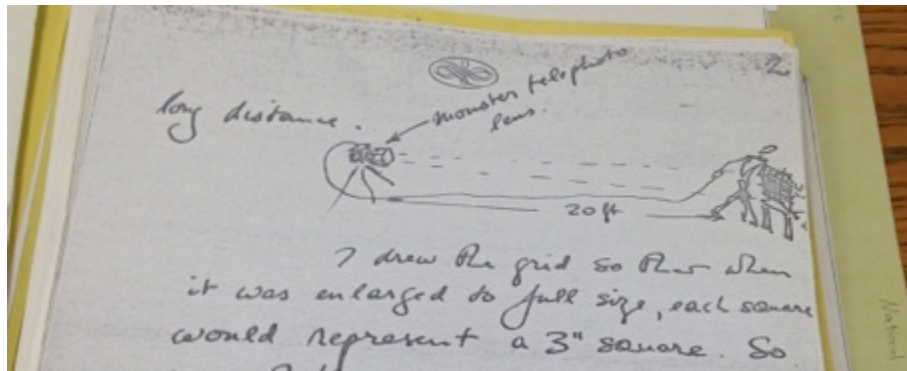 2
monster telephoto
lens.
long distance.
20 ft
I drew the grid so that when
it was enlarged to full size, each square
would represent a 3" square. So
National